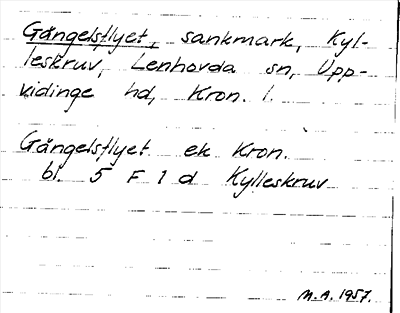 Gängelsflyet, sankmark, Kyl-
leskruv, Lenhovda sn, Upp-
vidinge hd, Kron. l.
Gängelsflyet ek Kron.
bl. 5 F 1 d Kylleskruv
M.A. 1957.